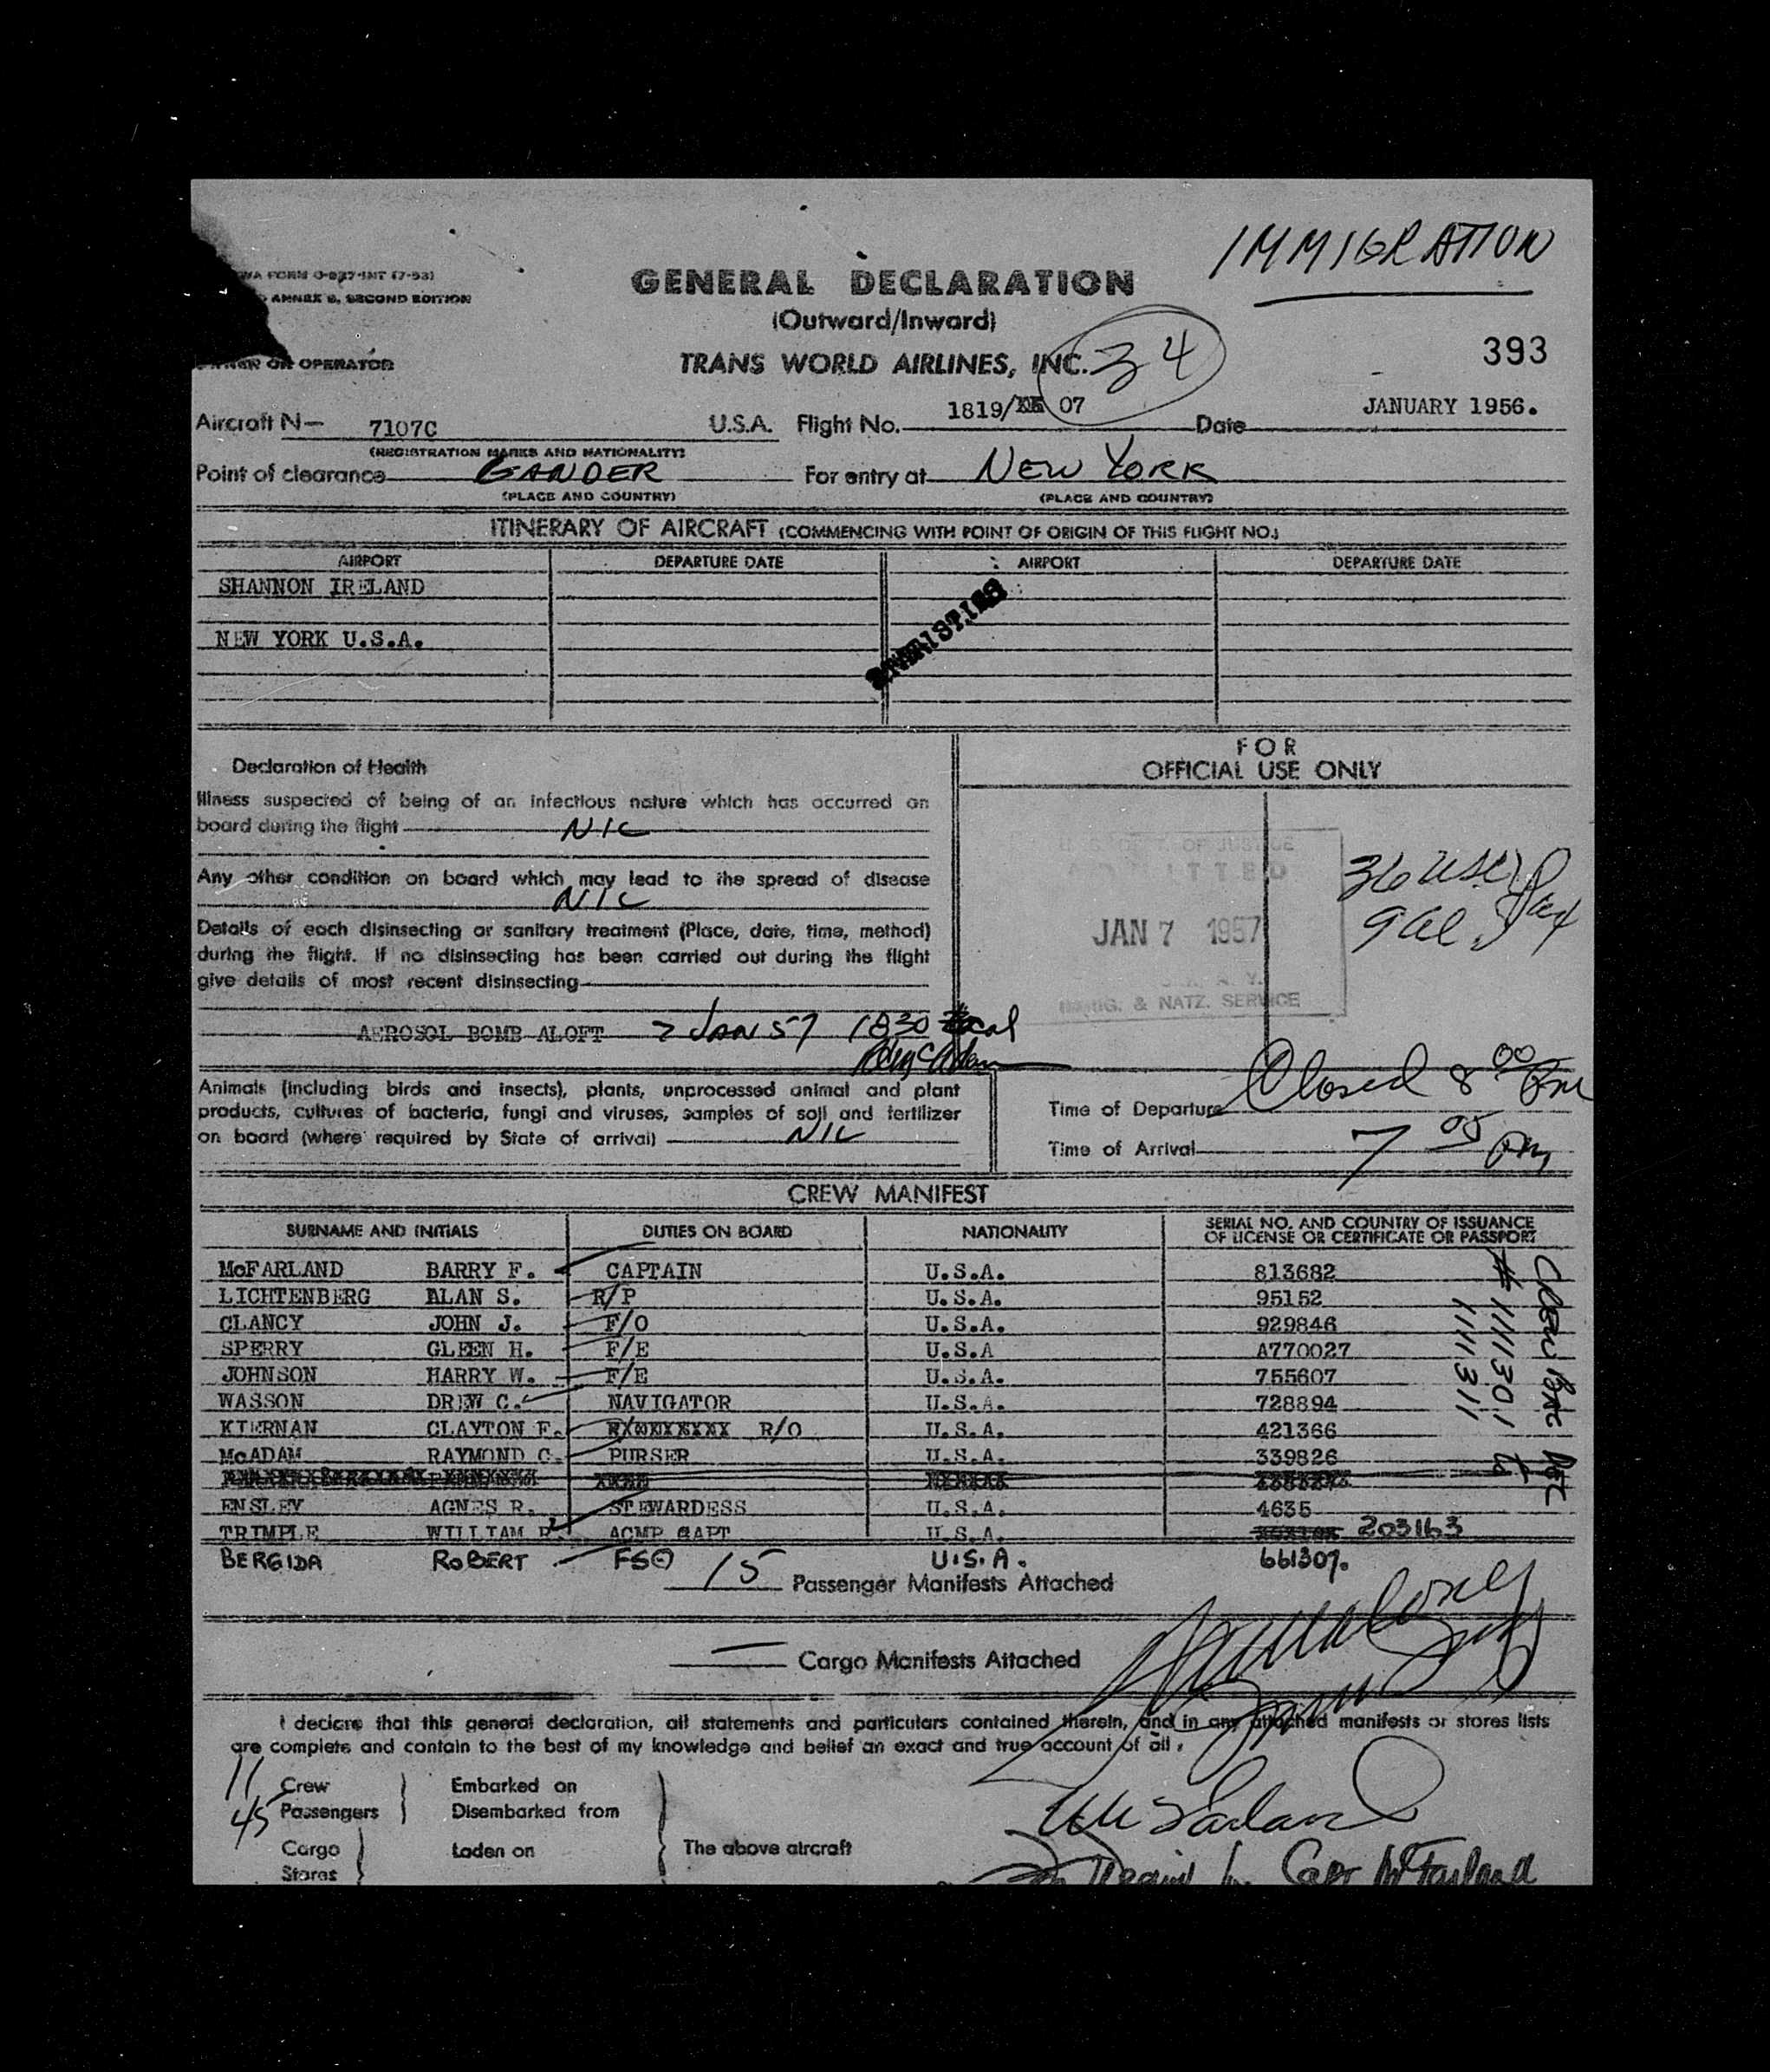 IMMIGRATION
WA FORM O-827-INT (7-53)
ANNEX 9, SECOND EDITION
GENERAL DECLARATION
(Outward/Inward)
OR OPERATOR
TRANS WORLD AIRLINES, INC.
34
393
Aircraft N— 7107C U.S.A. Flight No. 1819/ 07 Date JANUARY 1956.
(REGISTRATION MARKS AND NATIONALITY)
Point of clearance GANDER For entry at NEW YORK
(PLACE AND COUNTRY) (PLACE AND COUNTRY)
ITINERARY OF AIRCRAFT (COMMENCING WITH POINT OF ORIGIN OF THIS FLIGHT NO.)
AIRPORT DEPARTURE DATE AIRPORT DEPARTURE DATE
SHANNON IRELAND
NEW YORK U.S.A.
Declaration of Health
Illness suspected of being of an infectious nature which has occurred on
board during the flight NIL
Any other condition on board which may lead to the spread of disease
NIL
Details of each disinsecting or sanitary treatment (Place, date, time, method)
during the flight. If no disinsecting has been carried out during the flight
give details of most recent disinsecting
AEROSOL BOMB ALOFT 7 JAN 57 1830 Local
Animals (including birds and insects), plants, unprocessed animal and plant
products, cultures of bacteria, fungi and viruses, samples of soil and fertilizer
on board (where required by State of arrival) NIL
FOR
OFFICIAL USE ONLY
DEPT. OF JUSTICE
ADMITTED
JAN 7 1957
N. Y.
IMMIG. & NATZ. SERVICE
36 USC
9 al. Pax
Time of Departure Closed 8 00 Pm
Time of Arrival 7 05 Pm
CREW MANIFEST
SURNAME AND INITIALS DUTIES ON BOARD NATIONALITY SERIAL NO. AND COUNTRY OF ISSUANCE
OF LICENSE OR CERTIFICATE OR PASSPORT
McFARLAND BARRY F. CAPTAIN U.S.A. 813682
LICHTENBERG ALAN S. R/P U.S.A. 95152
CLANCY JOHN J. F/O U.S.A. 929846
SPERRY GLEEN H. F/E U.S.A A770027
JOHNSON HARRY W. F/E U.S.A. 755607
WASSON DREW C. NAVIGATOR U.S.A. 728894
KIERNAN CLAYTON F. R/O U.S.A. 421366
McADAM RAYMOND C. PURSER U.S.A. 339826
ENSLEY AGNES R. STEWARDESS U.S.A. 4635
TRIMPLE WILLIAM R. ACMP CAPT U.S.A. 203163
BERGIDA ROBERT FSO U.S.A. 661307.
CREW BAG DEC
# 1111301 to
1111311
15 Passenger Manifests Attached
— Cargo Manifests Attached
I declare that this general declaration, all statements and particulars contained therein, and in any attached manifests or stores lists
are complete and contain to the best of my knowledge and belief an exact and true account of all
11 Crew Embarked on
45 Passengers Disembarked from
Cargo Laden on The above aircraft
Stores
McFarland
Capt McFarland